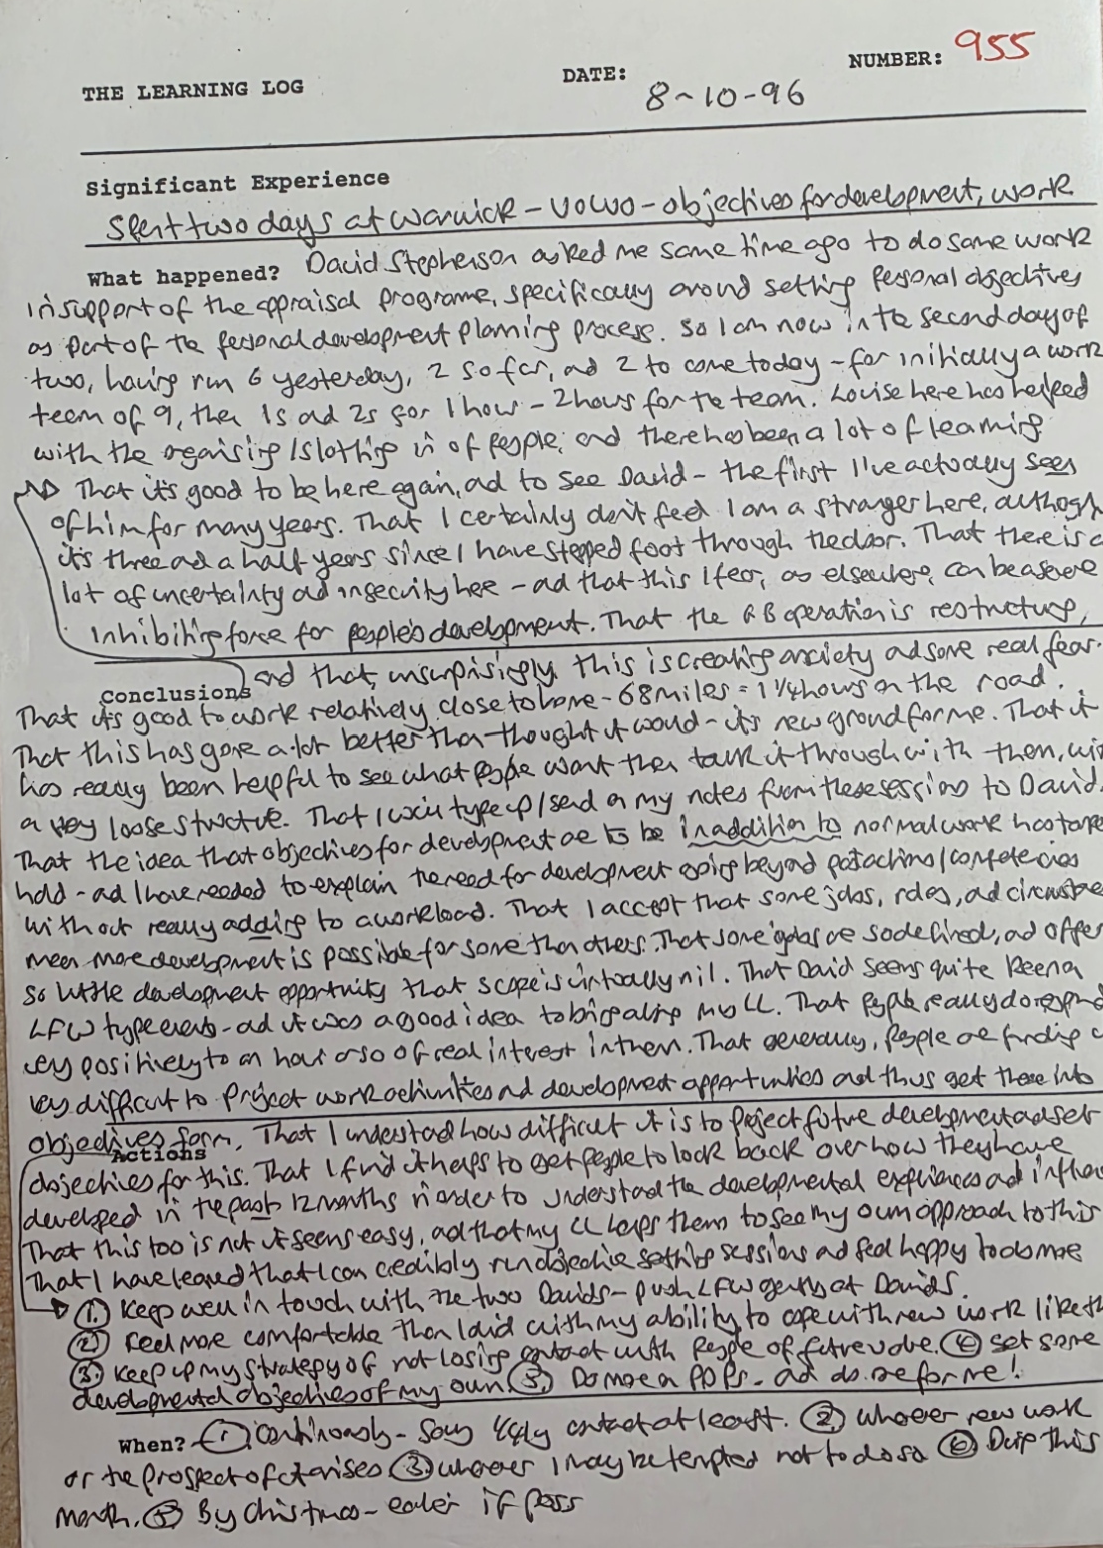 NUMBER: 955
THE LEARNING LOG DATE: 8-10-96
Significant Experience
Spent two days at Warwick - VOWO - objectives for development, work
What happened? David Stephenson asked me some time ago to do some work
in support of the appraisal programe, specifically around setting personal objectives
as part of the personal development planning process. So I am now in the second day of
two, having run 6 yesterday, 2 so far, and 2 to come today - for initially a work
team of 9, then 1s and 2s for 1 hour - 2 hours for the team. Louise here has helped
with the organising / slotting in of people; and there has been a lot of learning
That it's good to be here again, and to see David - the first I've actually seen
of him for many years. That I certainly don't feel I am a stranger here, although
it's three and a half years since I have stepped foot through the door. That there is a
lot of uncertainty and insecurity here - and that this I fear, as elsewhere, can be a severe
inhibiting force for people's development. That the RB operation is restructuring,
and that, unsurprisingly this is creating anxiety and some real fear.
Conclusions
That it's good to work relatively close to home - 68 miles = 1 1/4 hours on the road.
That this has gone a lot better than thought it would - it's new ground for me. That it
has really been helpful to see what people want then talk it through with them, with
a very loose structure. That I will type up / send on my notes from these sessions to David.
That the idea that objectives for development are to be in addition to normal work has to
hold - and I have needed to explain the need for development going beyond / competencies
without really adding to a workload. That I accept that some jobs, roles, and
mean more development is possible for some than others. That some jobs are so defined, and offer
so little development opportunity that scope is virtually nil. That David seems quite keen on
LFW type events - and it was a good idea to bring along my LL. That people really do respond
very positively to an hour or so of real interest in them. That generally, people are finding it
very difficult to project work activities and development opportunities and thus get these into
objectives form. That I understand how difficult it is to project future development and set
Actions
objectives for this. That I find it helps to get people to look back over how they have
developed in the past 12 months in order to understand the developmental experiences and
That this too is not it seems easy, and that my LL helps them to see my own approach to this
That I have learned that I can credibly run objective setting sessions and feel happy to do more
① Keep well in touch with the two Davids - push LFW gently at Davids.
② Feel more comfortable than I did with my ability to cope with new work like th
③ Keep up my strategy of not losing contact with people of future value. ④ Set some
developmental objectives of my own. ⑤ Do more on PDPs - and do one for me!
When? ① Continuously - say 1/4ly contact at least. ② Whenever new work
or the prospect of it arises ③ whenever I may be tempted not to do so ④ During this
month. ⑤ By Christmas - earlier if poss